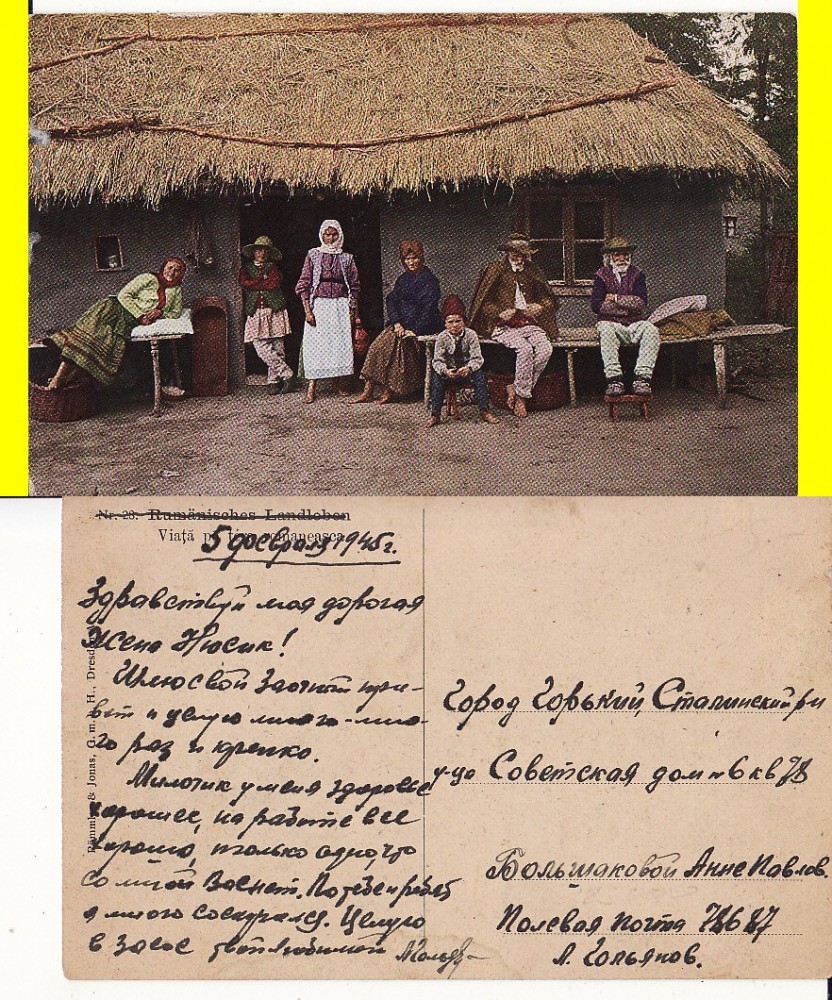 Nr. 28. Rumänisches Landleben
Viață
5 февраля 1945 г.
Здравствуй моя дорогая
Жена Нюсик!
Шлю свой Заочный при-
вет и целую много-мно-
го раз и крепко.
Милочик у меня здоровье
хорошее, на работе все
хорошо, только одно, что
со мной Вас нет. По тебе и
я много соскучился. Целую
в Засос твой любимый
Römmler & Jonas, G. m. b. H., Dresden
Город Горький, Сталинский р-н
у-ца Советская дом № 6 кв 78
Большаковой Анне Павлов.
Полевая почта
А. Гольянов.